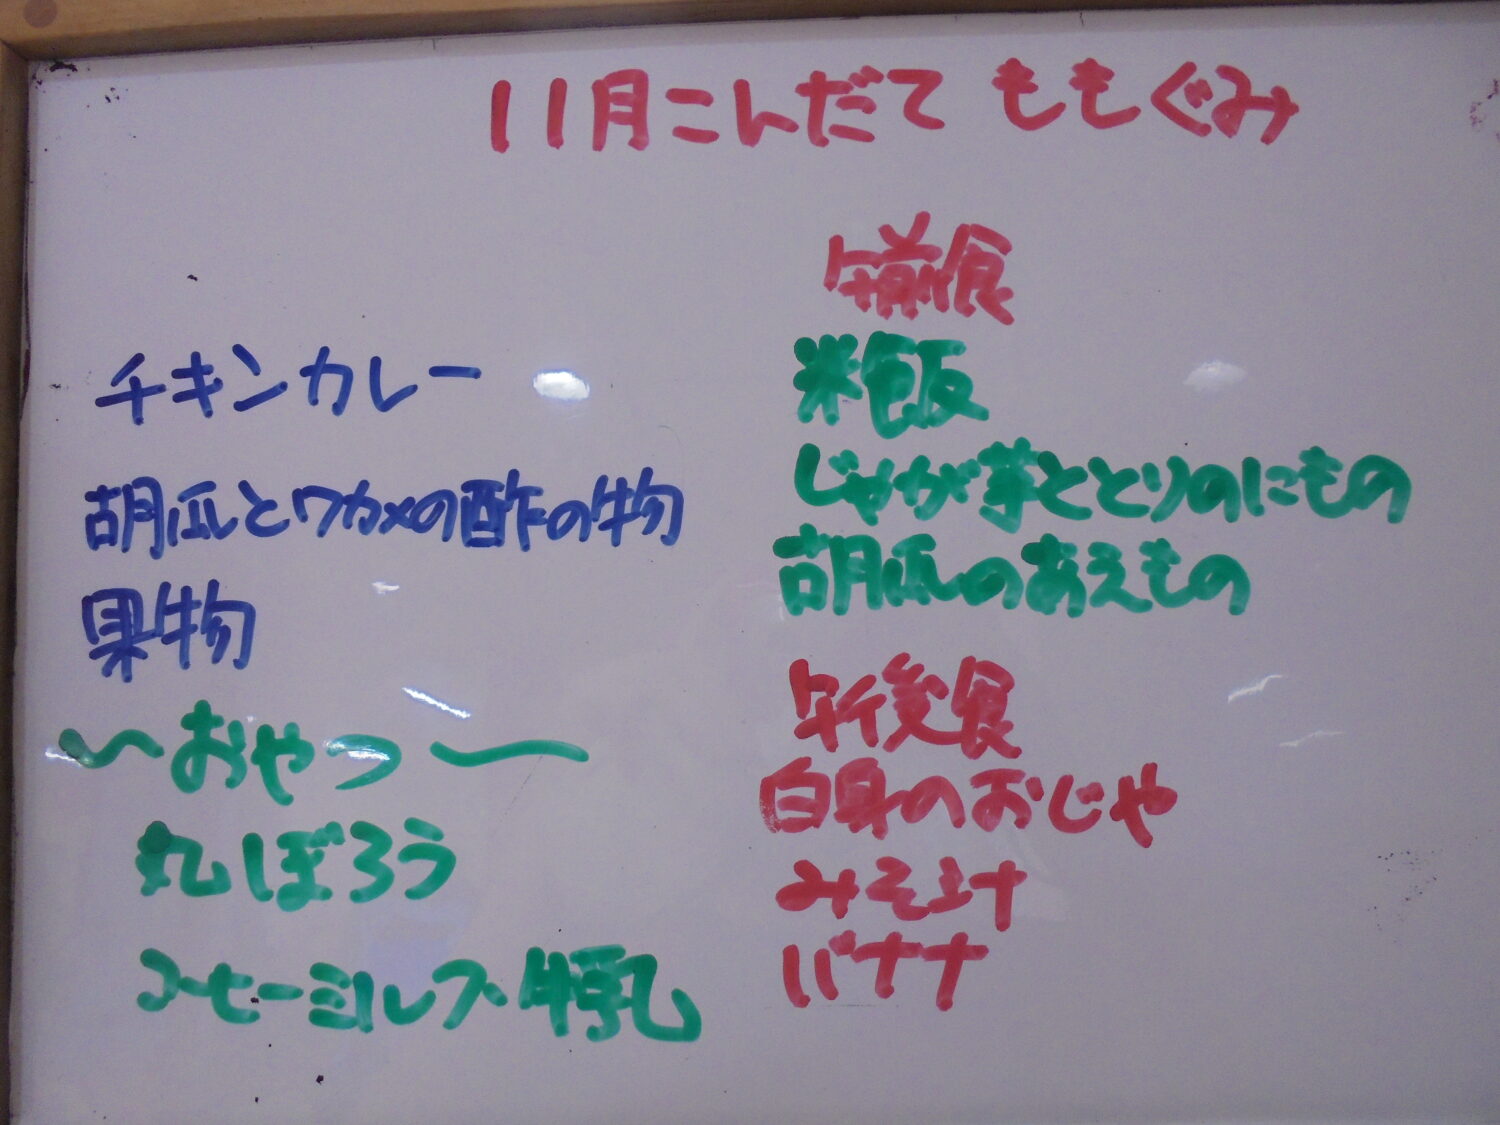 11月こんだて ももぐみ
チキンカレー
胡瓜とワカメの酢の物
果物
〜おやつ〜
丸ぼろう
コーヒーミルク・牛乳
午前食
米飯
じゃが芋ととりのにもの
胡瓜のあえもの
午後食
白身のおじや
みそ汁
バナナ